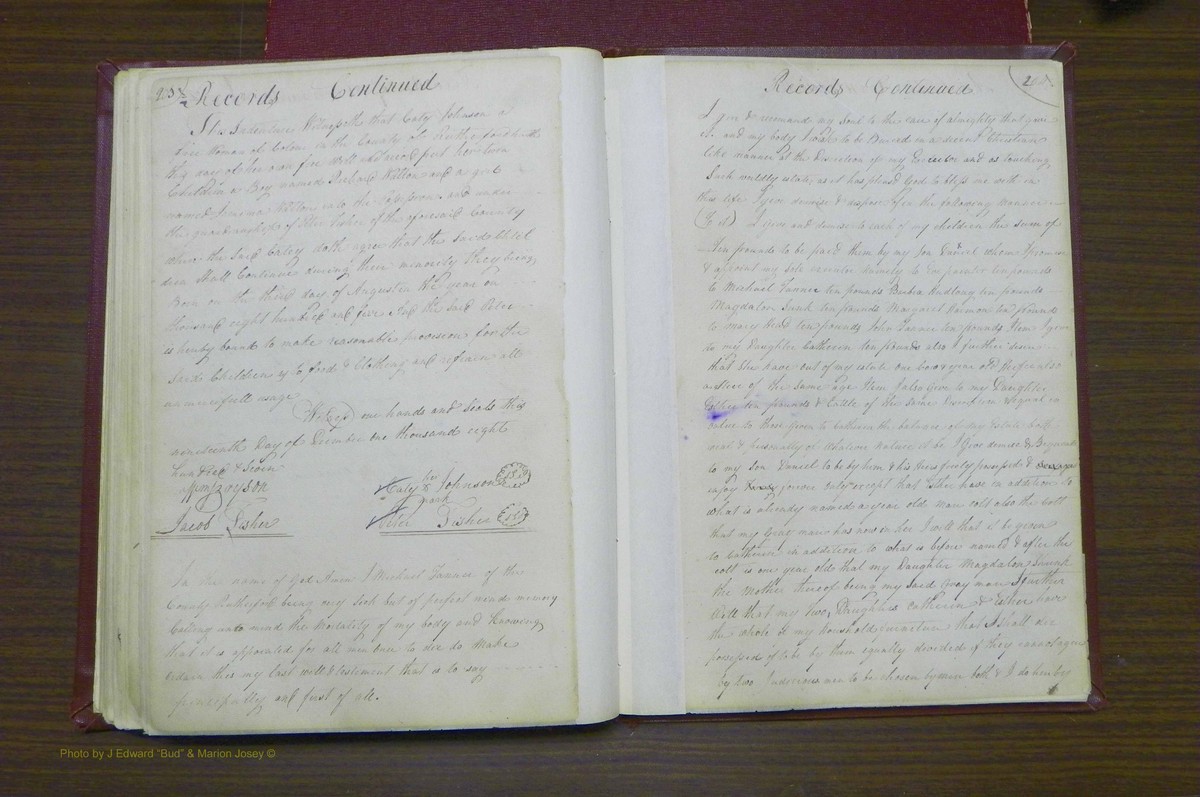 Records Continued
This Indenture Witnesseth that Caty Johnson a
free Woman of Colour in the County of Rutherford hath
this day of her own free Will and accord put her two
Children a Boy named Richard Wilton and a girl
named Wilton unto the and under
the guardianship of Peter Fisher of the aforesaid County
where the said Caty doth agree that the said Chil
dren Shall Continue during their minority they being
Born on the third day of August in the year on
thousand eight hundred and five And the said Peter
is hereby bound to make reasonable provision for the
Said Children of food & Clothing and refrain all
unmercifull usage
Witness our hands and Seals this
nineteenth Day of December one thousand eight
hundred & Seven
Caty her X mark Johnson Seal
Jacob Fisher
Peter Fisher Seal
In the name of God Amen I Michael Tanner of the
County Rutherford being very Sick but of perfect mind & memory
Calling unto mind the Mortality of my body and Knowing
that it is appointed for all men once to die do Make
ordain this my last will & testiment that is to say
principally and first of all.
Records Continued
I give & recomend my Soul to the care of almighty that gave
it and my body I will to be Buried in a decent Christian
like manner at the Discretion of my Executor and as touching
Such worldly estate as it has pleasd God to bless me with in
this life I give demise & dispose of in the following manner
I give and demise to each of my children the sum of
ten pounds to be paid them by my Son Daniel whom I
& appoint my Sole executor namely to ten pounds
to Michael Tanner ten pounds ten pounds
Magdalen ten pounds Margaret Harmon ten pounds
to Mary Head ten pounds John Tanner ten pounds Item I give
to my Daughter Catheren ten pounds also I further
that She have out of my estate one year old also
a of the Same age Item I also give to my Daughter
Esther ten pounds & Cattle of the Same equal in
value to those given to Catheren the balance of my Estate both
real & personally of whatever nature to be I Give demise & Bequeath
to my Son Daniel to be by him & his Heirs freely possessed &
enjoy forever only except that Esther have in addition to
what is already named a year old mare colt also the Colt
that my Gray mare has now in her I will that it be given
to Catheren in addition to what is before named & after the
colt is one year old that my Daughter Magdalen
the mother thereof being my Said Gray mare I further
Will that my two Daughters Catheren & Esther have
the whole of my Household furniture that I Shall die
possessed of to be by them equally divided if they cannot agree
by two men to be chosen by them both & I do hereby
Photo by J Edward "Bud" & Marion Josey ©